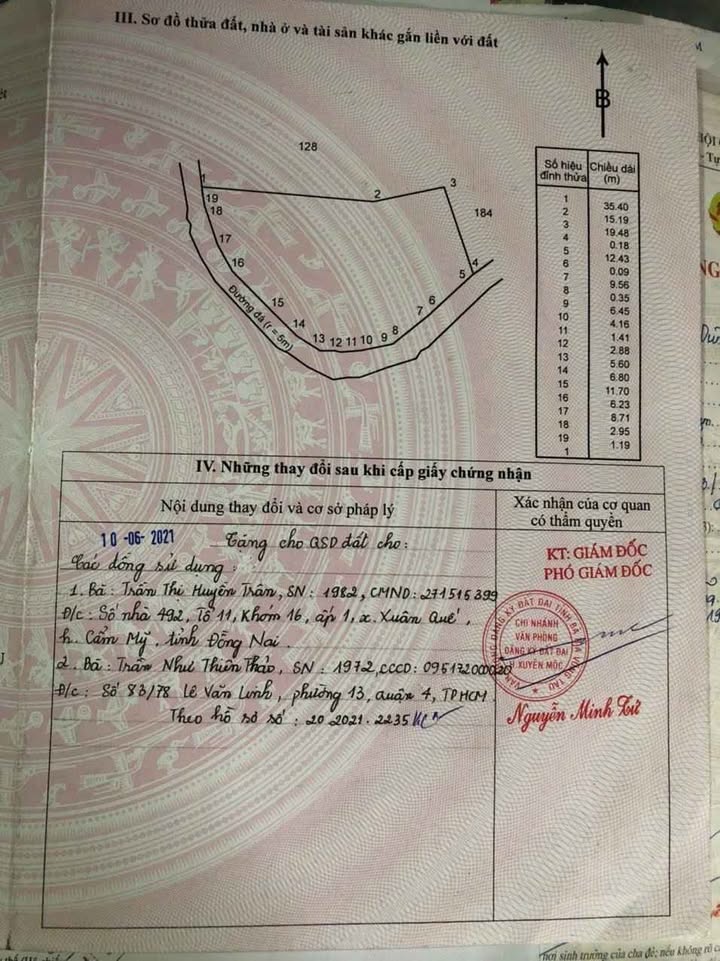 III. Sơ đồ thửa đất, nhà ở và tài sản khác gắn liền với đất
B
128
1
2
3
184
19
18
17
16
15
14
13 12 11 10 9 8
7
6
5
4
Đường đá (r = 5m)
Số hiệu đỉnh thửa | Chiều dài (m)
1
35.40
2
15.19
3
19.48
4
0.18
5
12.43
6
0.09
7
9.56
8
0.35
9
6.45
10
4.16
11
1.41
12
2.88
13
5.60
14
6.80
15
11.70
16
6.23
17
8.71
18
2.95
19
1.19
1
IV. Những thay đổi sau khi cấp giấy chứng nhận
Nội dung thay đổi và cơ sở pháp lý
Xác nhận của cơ quan
có thẩm quyền
10-06-2021 Tặng cho QSD đất cho:
Các đồng sử dụng:
1. Bà: Trần Thị Huyền Trân, SN: 1982, CMND: 271515399
Đ/c: Số nhà 492, Tổ 11, Khóm 16, ấp 1, x. Xuân Quế,
h. Cẩm Mỹ, tỉnh Đồng Nai.
2. Bà: Trần Như Thiên Thảo, SN: 1972, CCCD: 095172000020
Đ/c: Số 83/78 Lê Văn Linh, phường 13, quận 4, TPHCM.
Theo hồ sơ số: 20 2021.2235
KT: GIÁM ĐỐC
PHÓ GIÁM ĐỐC
VĂN PHÒNG ĐĂNG KÝ ĐẤT ĐAI TỈNH BÀ RỊA VŨNG TÀU
CHI NHÁNH
VĂN PHÒNG
ĐĂNG KÝ ĐẤT ĐAI
H. XUYÊN MỘC
Nguyễn Minh Tứ
nơi sinh trưởng của cha đẻ; nếu không rõ